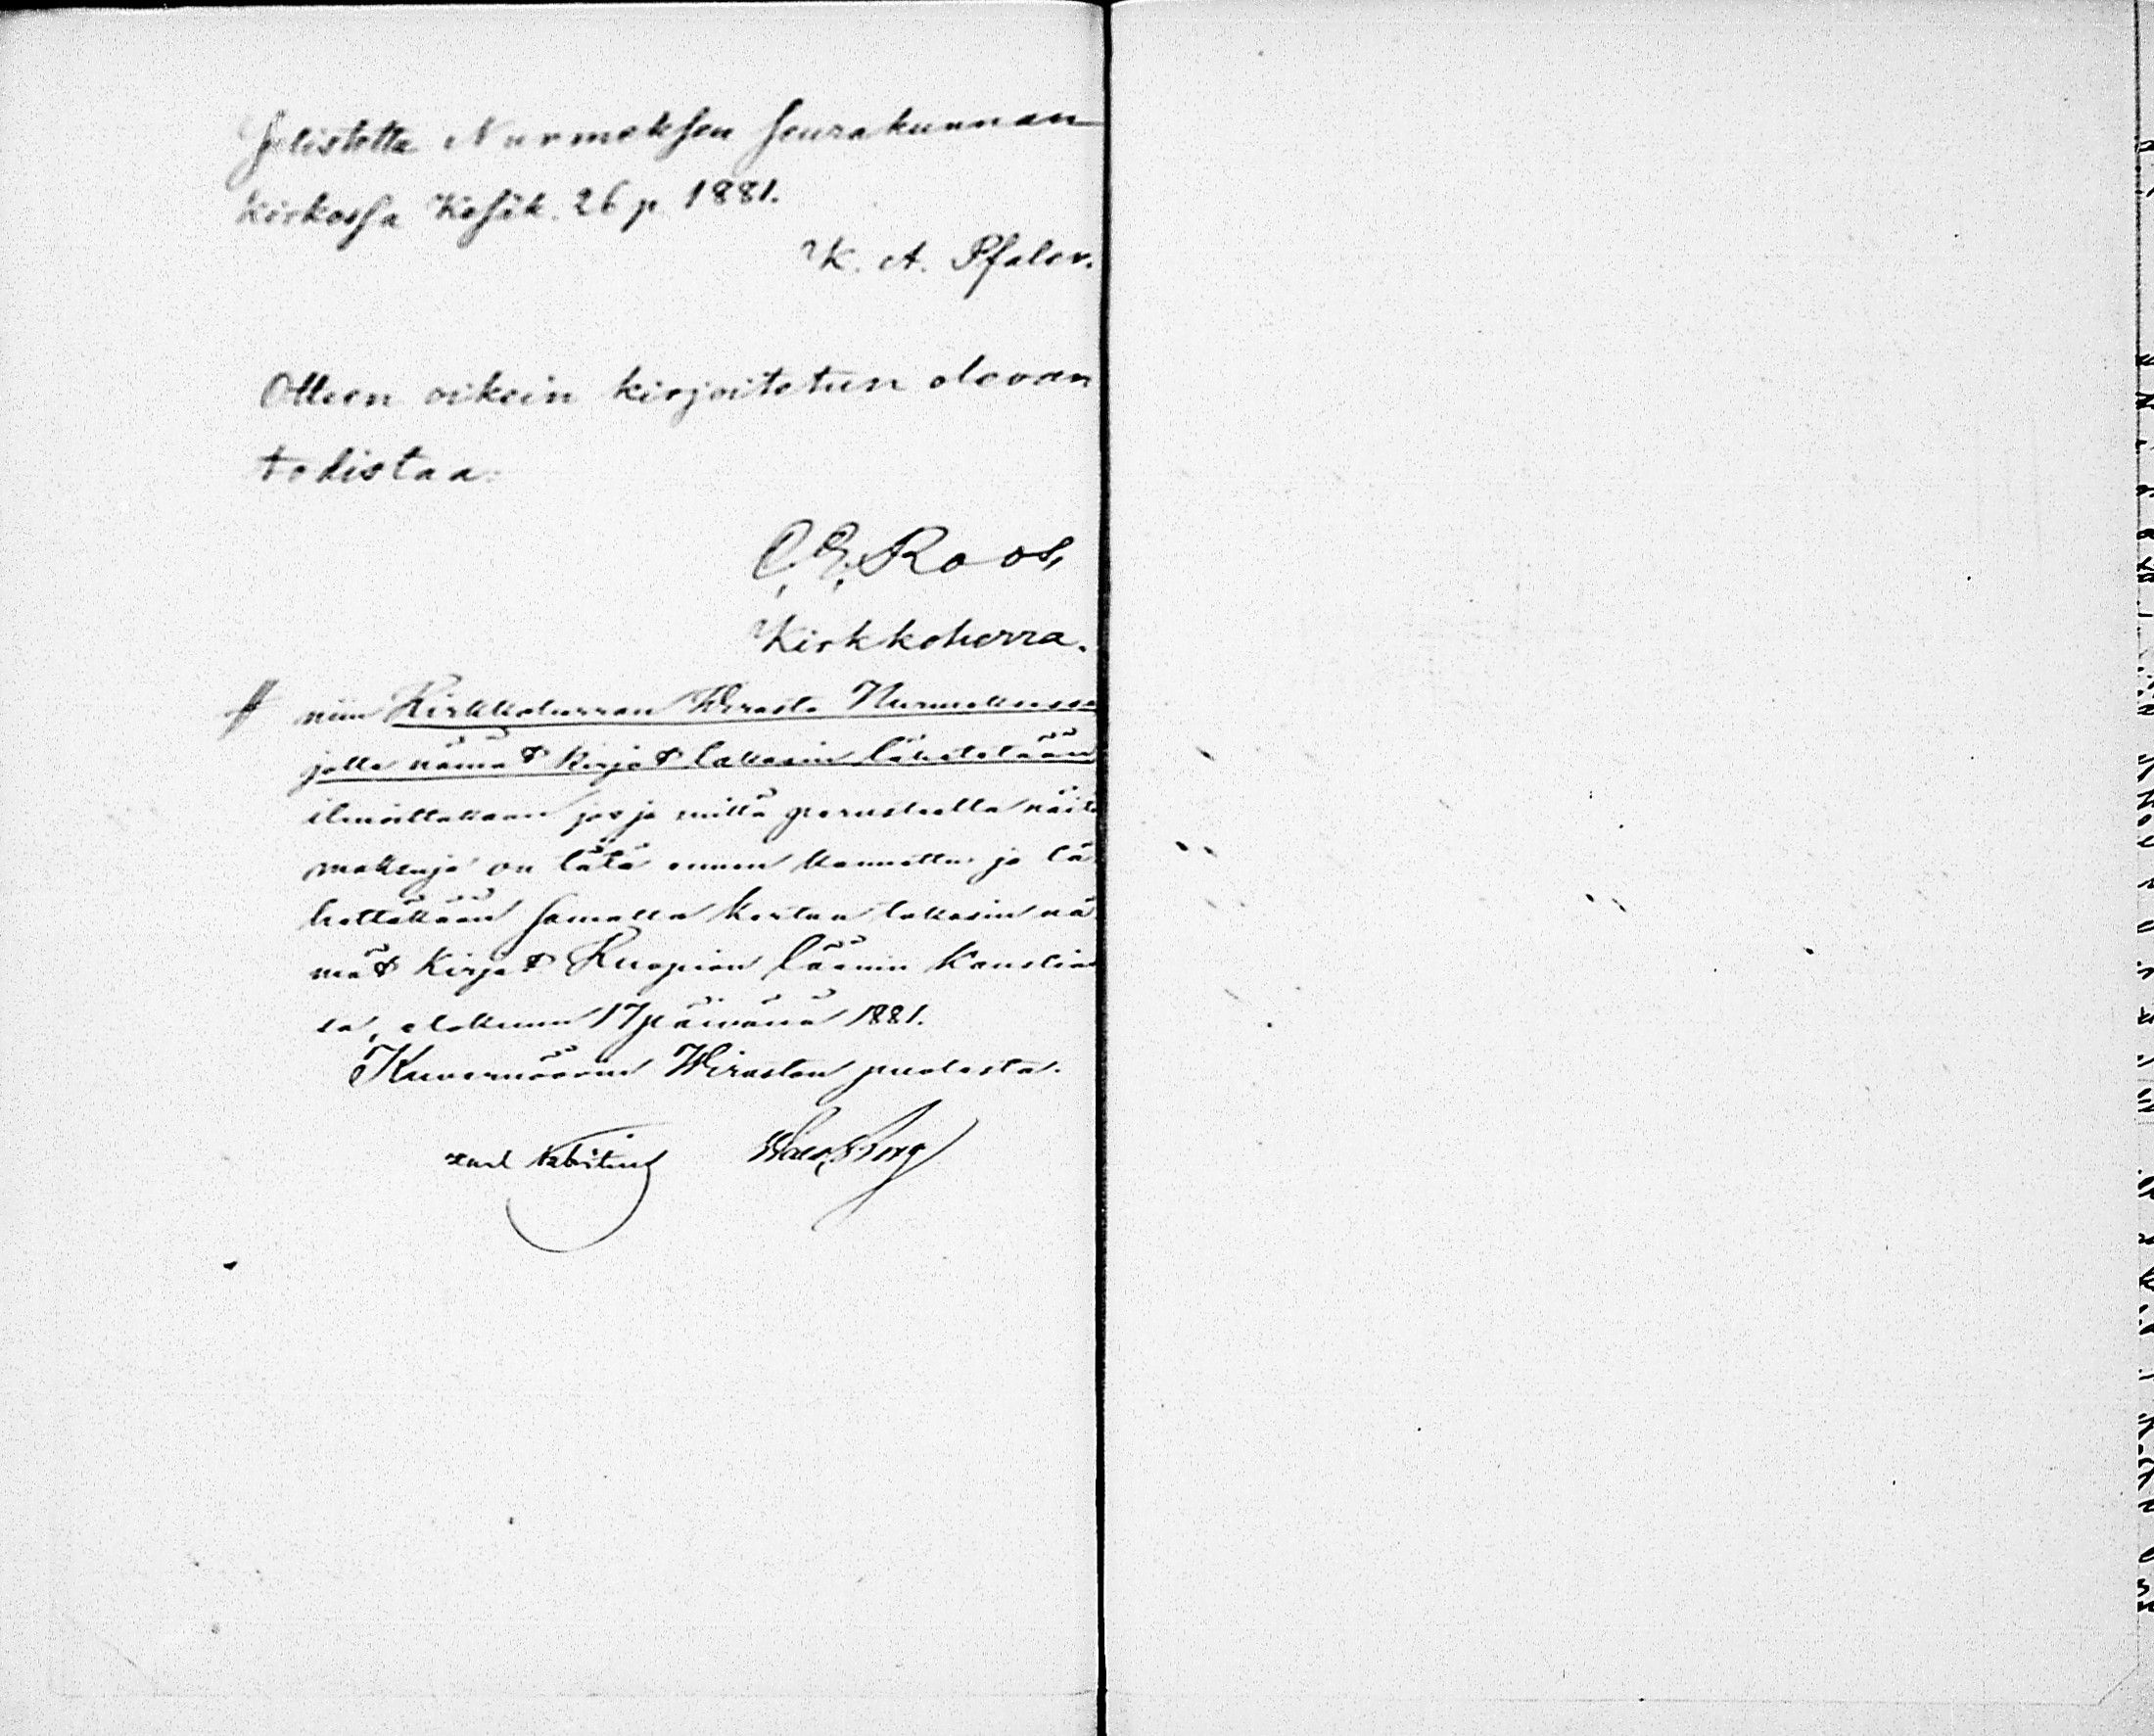 Julistettu Nurmeksen Seurakunnan
kirkossa Kesäk. 26 p. 1881.
K. A. Pfaler.
Olleen oikein kirjoitetun olevan
todistaa:
C. E. Roos,
Kirkkoherra.
niin Kirkkoherran Wirasto Nurmeksessa
jolle nämät kirjat takasin lähetetään
ilmoittakaan jos ja millä perusteella näitä
maksuja on tätä ennen kannettu ja lä-
hettäkään samalla kertaa takasin nä-
mät kirjat Kuopion läänin Kanslias-
sa, elokuun 17 päivänä 1881.
Kuvernöörin Wiraston puolesta.